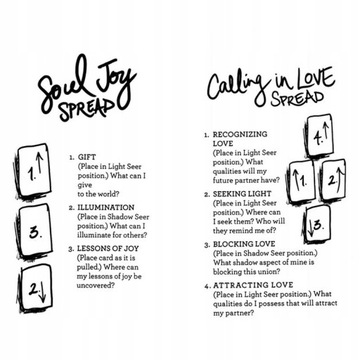 Soul Joy
SPREAD
1.↑
3.
2↓
1. GIFT
(Place in Light Seer
position.) What can I
give
to the world?
2. ILLUMINATION
(Place in Shadow Seer
position.) What can I
illuminate for others?
3. LESSONS OF JOY
(Place card as it is
pulled.) Where can
my lessons of joy be
uncovered?
Calling in LOVE
SPREAD
1. RECOGNIZING
LOVE
(Place in Light Seer
position.) What
qualities will my
future partner have?
2. SEEKING LIGHT
(Place in Light Seer
position.) Where can
I seek them? Who will
they remind me of?
3. BLOCKING LOVE
(Place in Shadow Seer position.)
What shadow aspect of mine is
blocking this union?
4. ATTRACTING LOVE
(Place in Light Seer position.) What
qualities do I possess that will attract
my partner?
4.↑
↑1.
2↑
↓3.